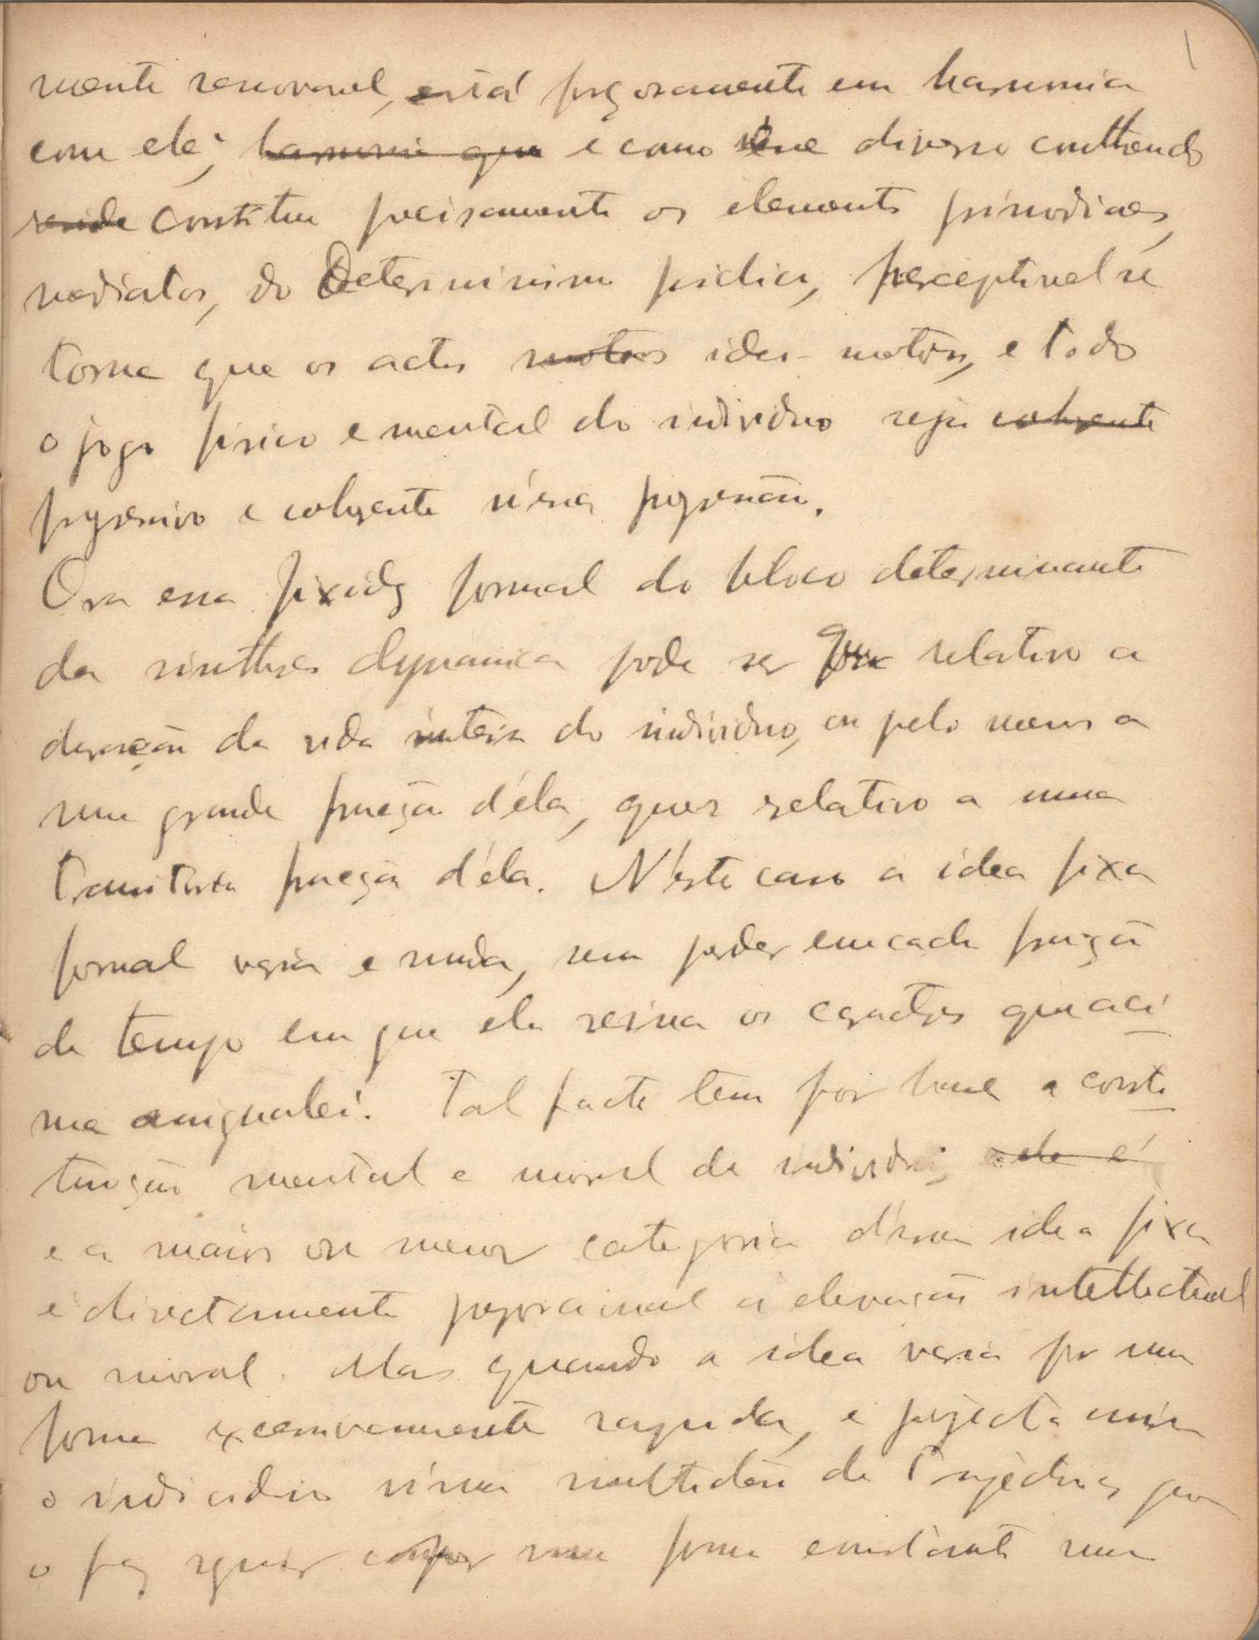 mente renovavel, está forçosamente em harmonia
com ele, harmonia que e como esse diverso conthendo
reside constitue precisamente os elementos primordiaes,
mediatos, do Determinismo psichico, perceptivel se
torna que os actos motores ideo-motores, e todo
o jogo fisico e mental do individuo seja cohérente
progressivo e cohérente n'essa progressão.
Ora essa fixidez formal do bloco determinante
da sinthese dynamica pode ser quer relativo a
duração da vida inteira do individuo, ou pelo menos a
uma grande fracção d'éla, quer relativo a uma
transitoria fracção d'éla. N'éste caso a idea fixa
formal varia e muda, sem perder em cada fracção
de tempo em que ela reina os caracteres que aci
ma assignalei. Tal facto tem por base a consti
tuição mental e moral do individuo, ele é
e a maior ou menor categoria d'essa idea fixa
é directamente proporcional á elevação intellectual
ou moral. Mas quando a idea varia por uma
forma excessivamente rapida, e projecta assim
o individuo n'uma multidão de trajectorias que
o faz seguir uma forma constante uma